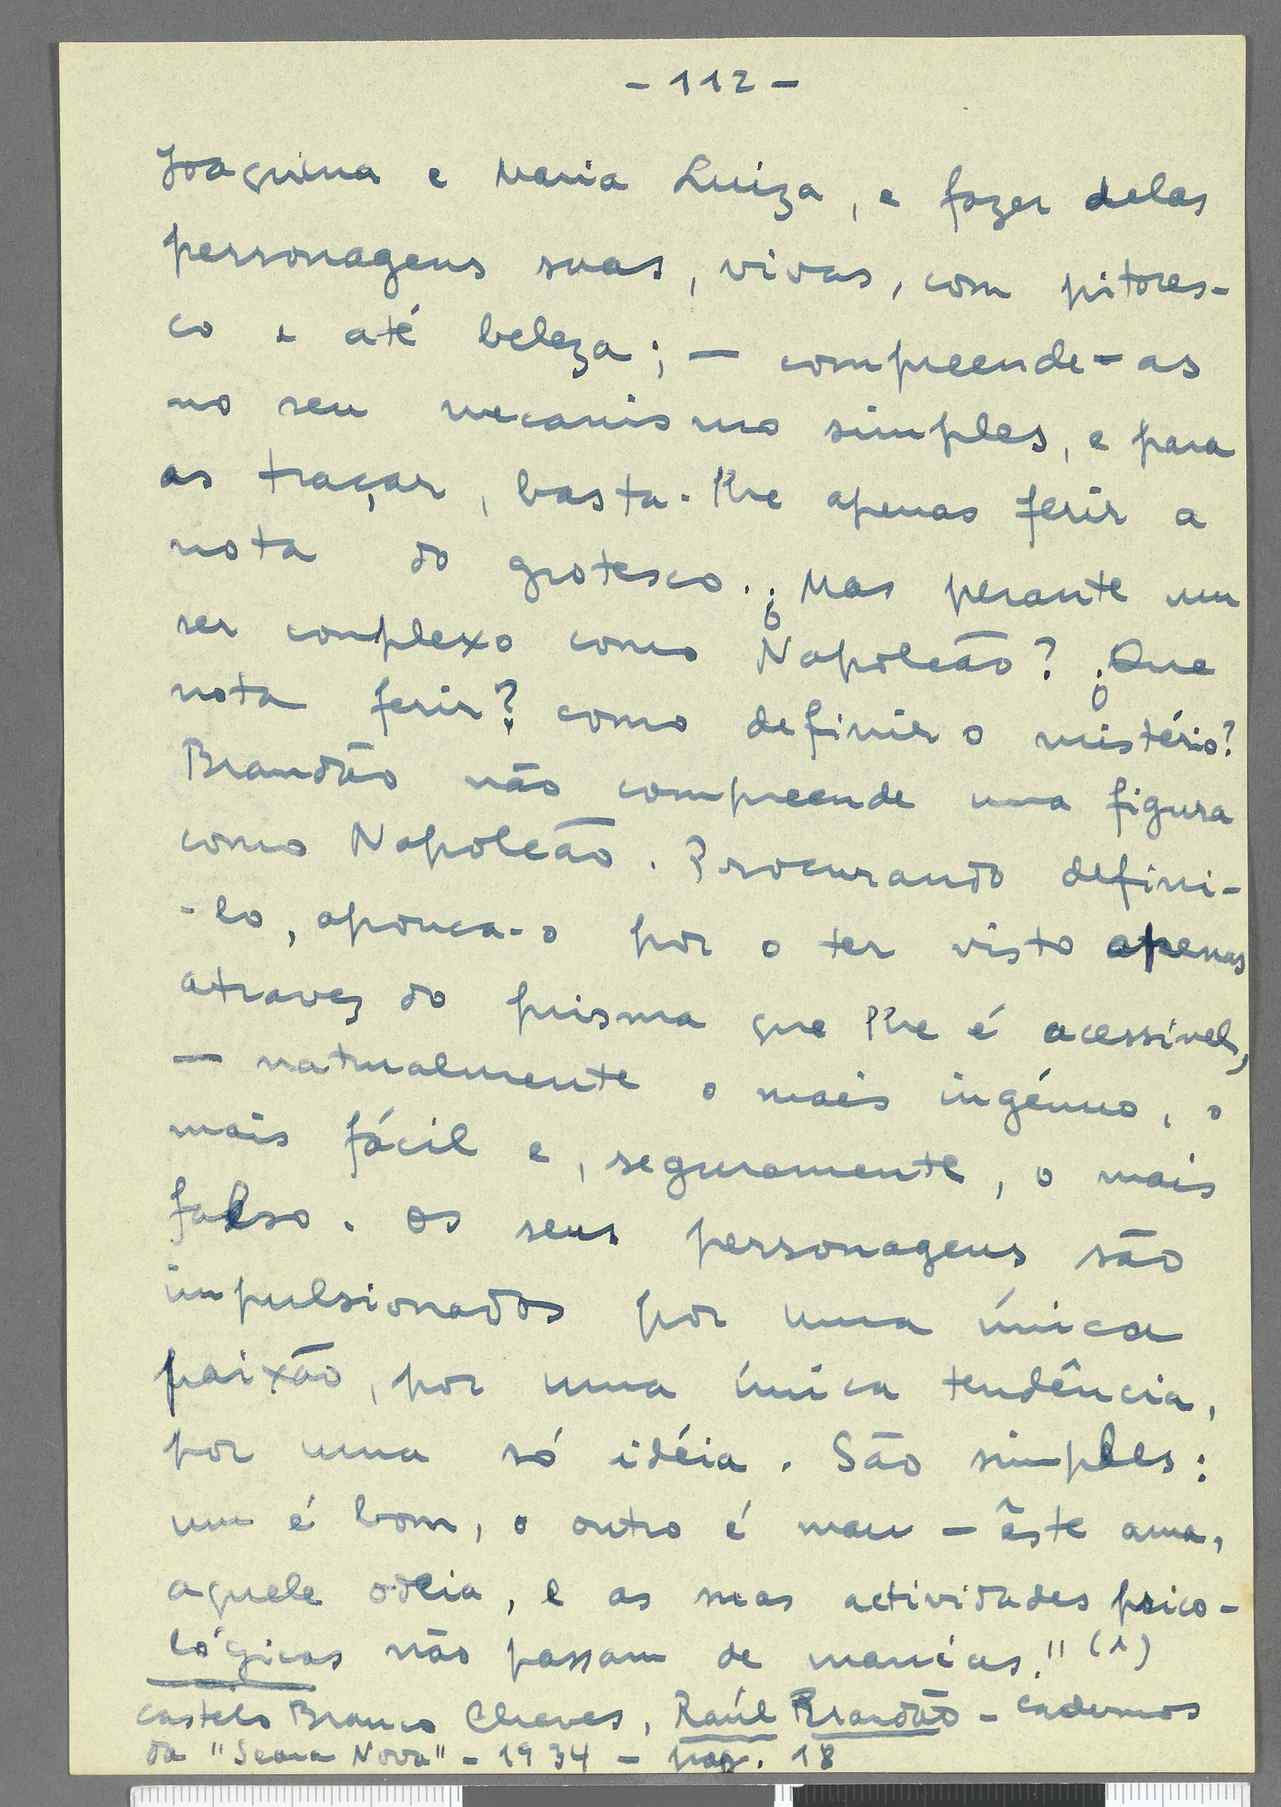 - 112 -
Joaquina e Maria Luiza, e fazer delas
personagens suas, vivas, com pitores-
co e até beleza; — compreende-as
no seu mecanismo simples, e para
as traçar, basta-lhe apenas ferir a
nota do grotesco. ¿Mas perante um
ser complexo como Napoleão? ¿Que
nota ferir? como definir o mistério?
Brandão não compreende uma figura
como Napoleão. Procurando defini-
-lo, apouca-o por o ter visto apenas
atravez do prisma que lhe é acessível,
— naturalmente o mais ingénuo, o
mais fácil e, seguramente, o mais
falso. Os seus personagens são
impulsionados por uma única
paixão, por uma única tendência,
por uma só idéia. São simples:
um é bom, o outro é mau — êste ama,
aquele odeia, e as suas actividades psico-
lógicas não passam de manías." (1)
Castelo Branco Chaves, Raúl Brandão - Cadernos
da "Seara Nova" - 1934 - pag. 18